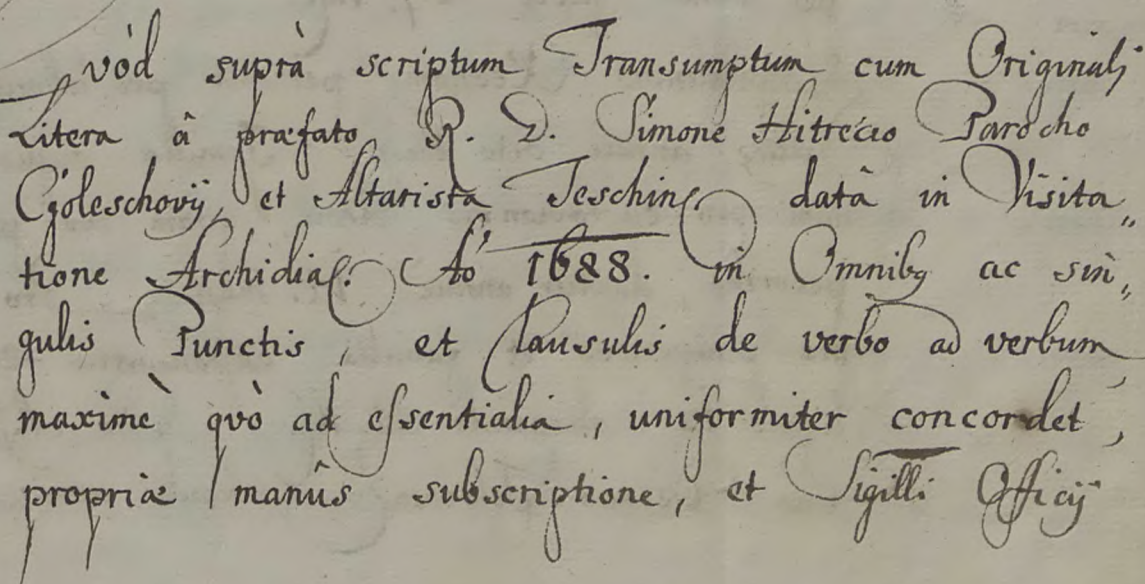 Qvòd suprà scriptum Transumptum cum Originali
Litera â præfato R. D. Simone Hitrecio Parocho
Goleschovij, et Altarista Teschin. datâ in Visita„
tione Archidiac. Aō 1688. in Omnibq ac sin„
gulis Punctis, et Clausulis de verbo ad verbum,
maximè qvò ad eſsentialia, uniformiter concordet,
propriæ manûs subscriptione, et Sigilli Officij